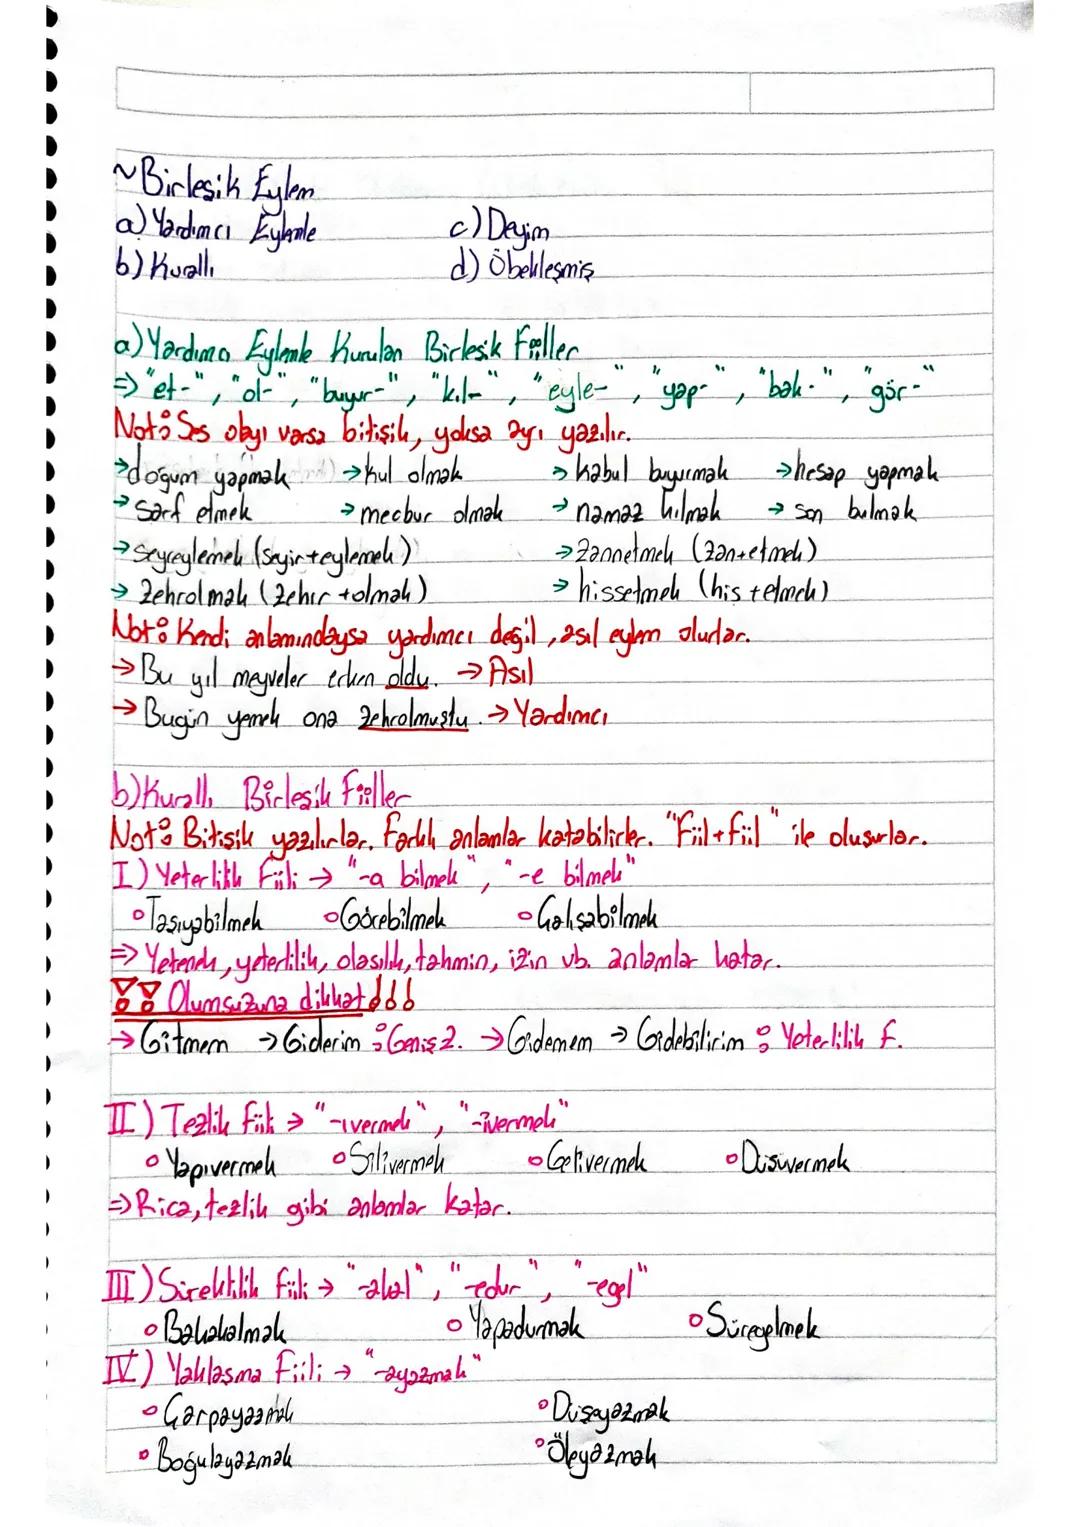 ~Birleşik Eylem
a) Yardımcı Eylemle c) Deyim
b) Kurallı d) Öbekleşmiş
a) Yardımcı Eylemle Kurulan Birleşik Fiiller
⇒ "et-", "ol-", "buyur-", "kıl-", "eyle-", "yap-", "bak-", "gör-"
Not: Ses olayı varsa bitişik, yoksa ayrı yazılır.
→doğum yapmak →kul olmak →kabul buyurmak →hesap yapmak
→sarf etmek →mecbur olmak →namaz kılmak →son bulmak
→seyreylemek (seyir+eylemek) →zannetmek (zan+etmek)
→zehrolmak (zehir+olmak) →hissetmek (his+etmek)
Not: Kendi anlamındaysa yardımcı değil, asıl eylem olurlar.
→Bu yıl meyveler erken oldu. →Asıl
→Bugün yemek ona zehrolmuştu. →Yardımcı
b) Kurallı Birleşik Fiiller
Not: Bitişik yazılırlar. Farklı anlamlar katabilirler. "Fiil+fiil" ile oluşurlar.
I) Yeterlilik Fiili → "-a bilmek", "-e bilmek"
∘Taşıyabilmek ∘Görebilmek ∘Çalışabilmek
⇒ Yetenek, yeterlilik, olasılık, tahmin, izin vb. anlamlar katar.
!! Olumsuzuna dikkat!!!
→Gitmem →Giderim : Geniş Z. →Gidemem →Gidebilirim : Yeterlilik F.
II) Tezlik Fiili → "-ıvermek", "-ivermek"
∘Yapıvermek ∘Silivermek ∘Gelivermek ∘Düşüvermek
⇒Rica, tezlik gibi anlamlar katar.
III) Süreklilik Fiili → "-akal", "-edur", "-egel"
∘Bakakalmak ∘Yapadurmak ∘Süregelmek
IV) Yaklaşma Fiili → "-ayazmak"
∘Çarpayazmak ∘Düşeyazmak
∘Boğulayazmak ∘Öleyazmak